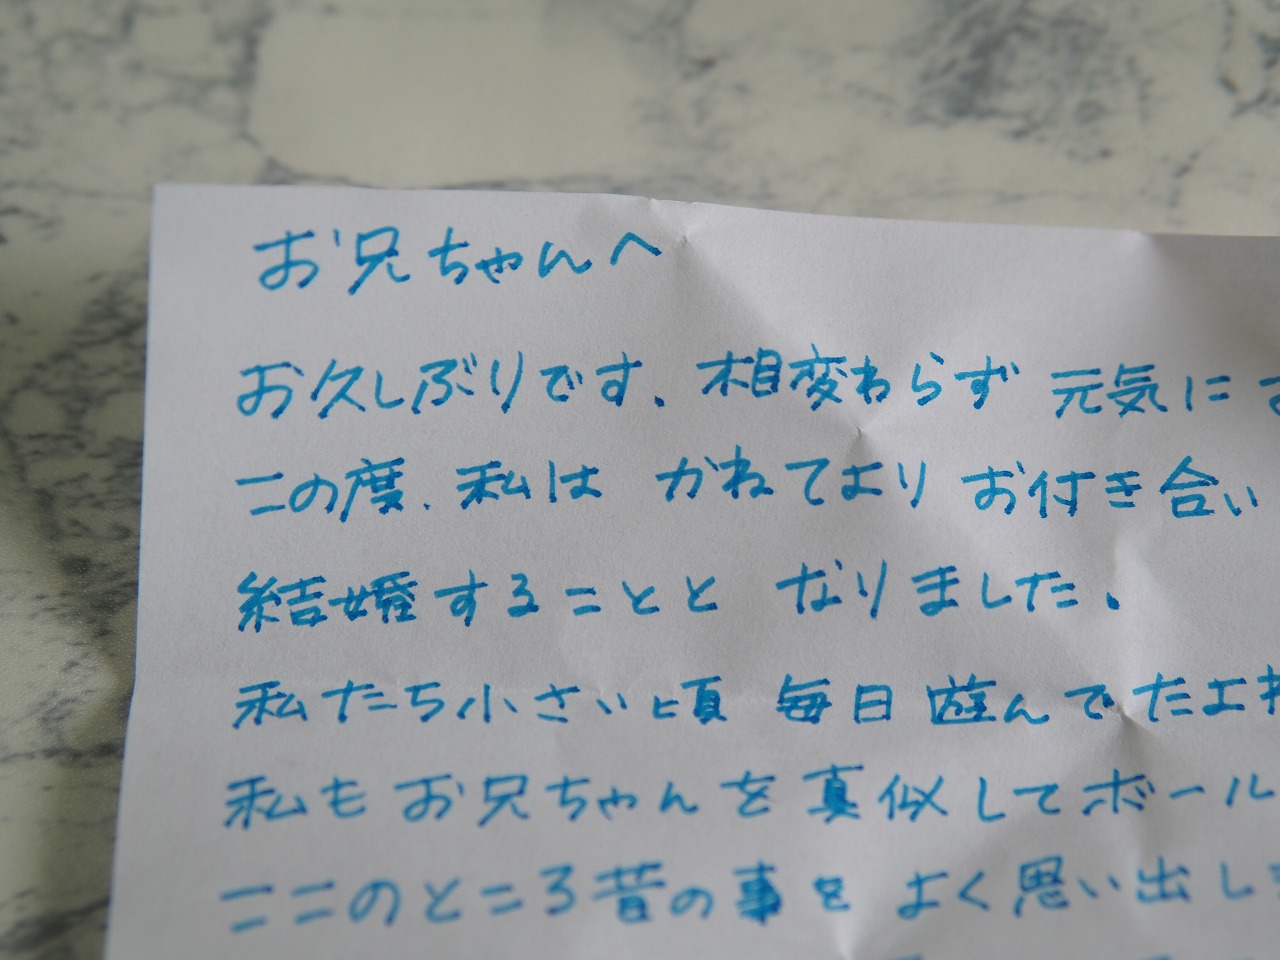 お兄ちゃんへ
お久しぶりです。相変わらず元気に
この度、私はかねてよりお付き合い
結婚することとなりました。
私たち小さい頃毎日遊んでたよね
私もお兄ちゃんを真似してボール
ここのところ昔の事をよく思い出しま